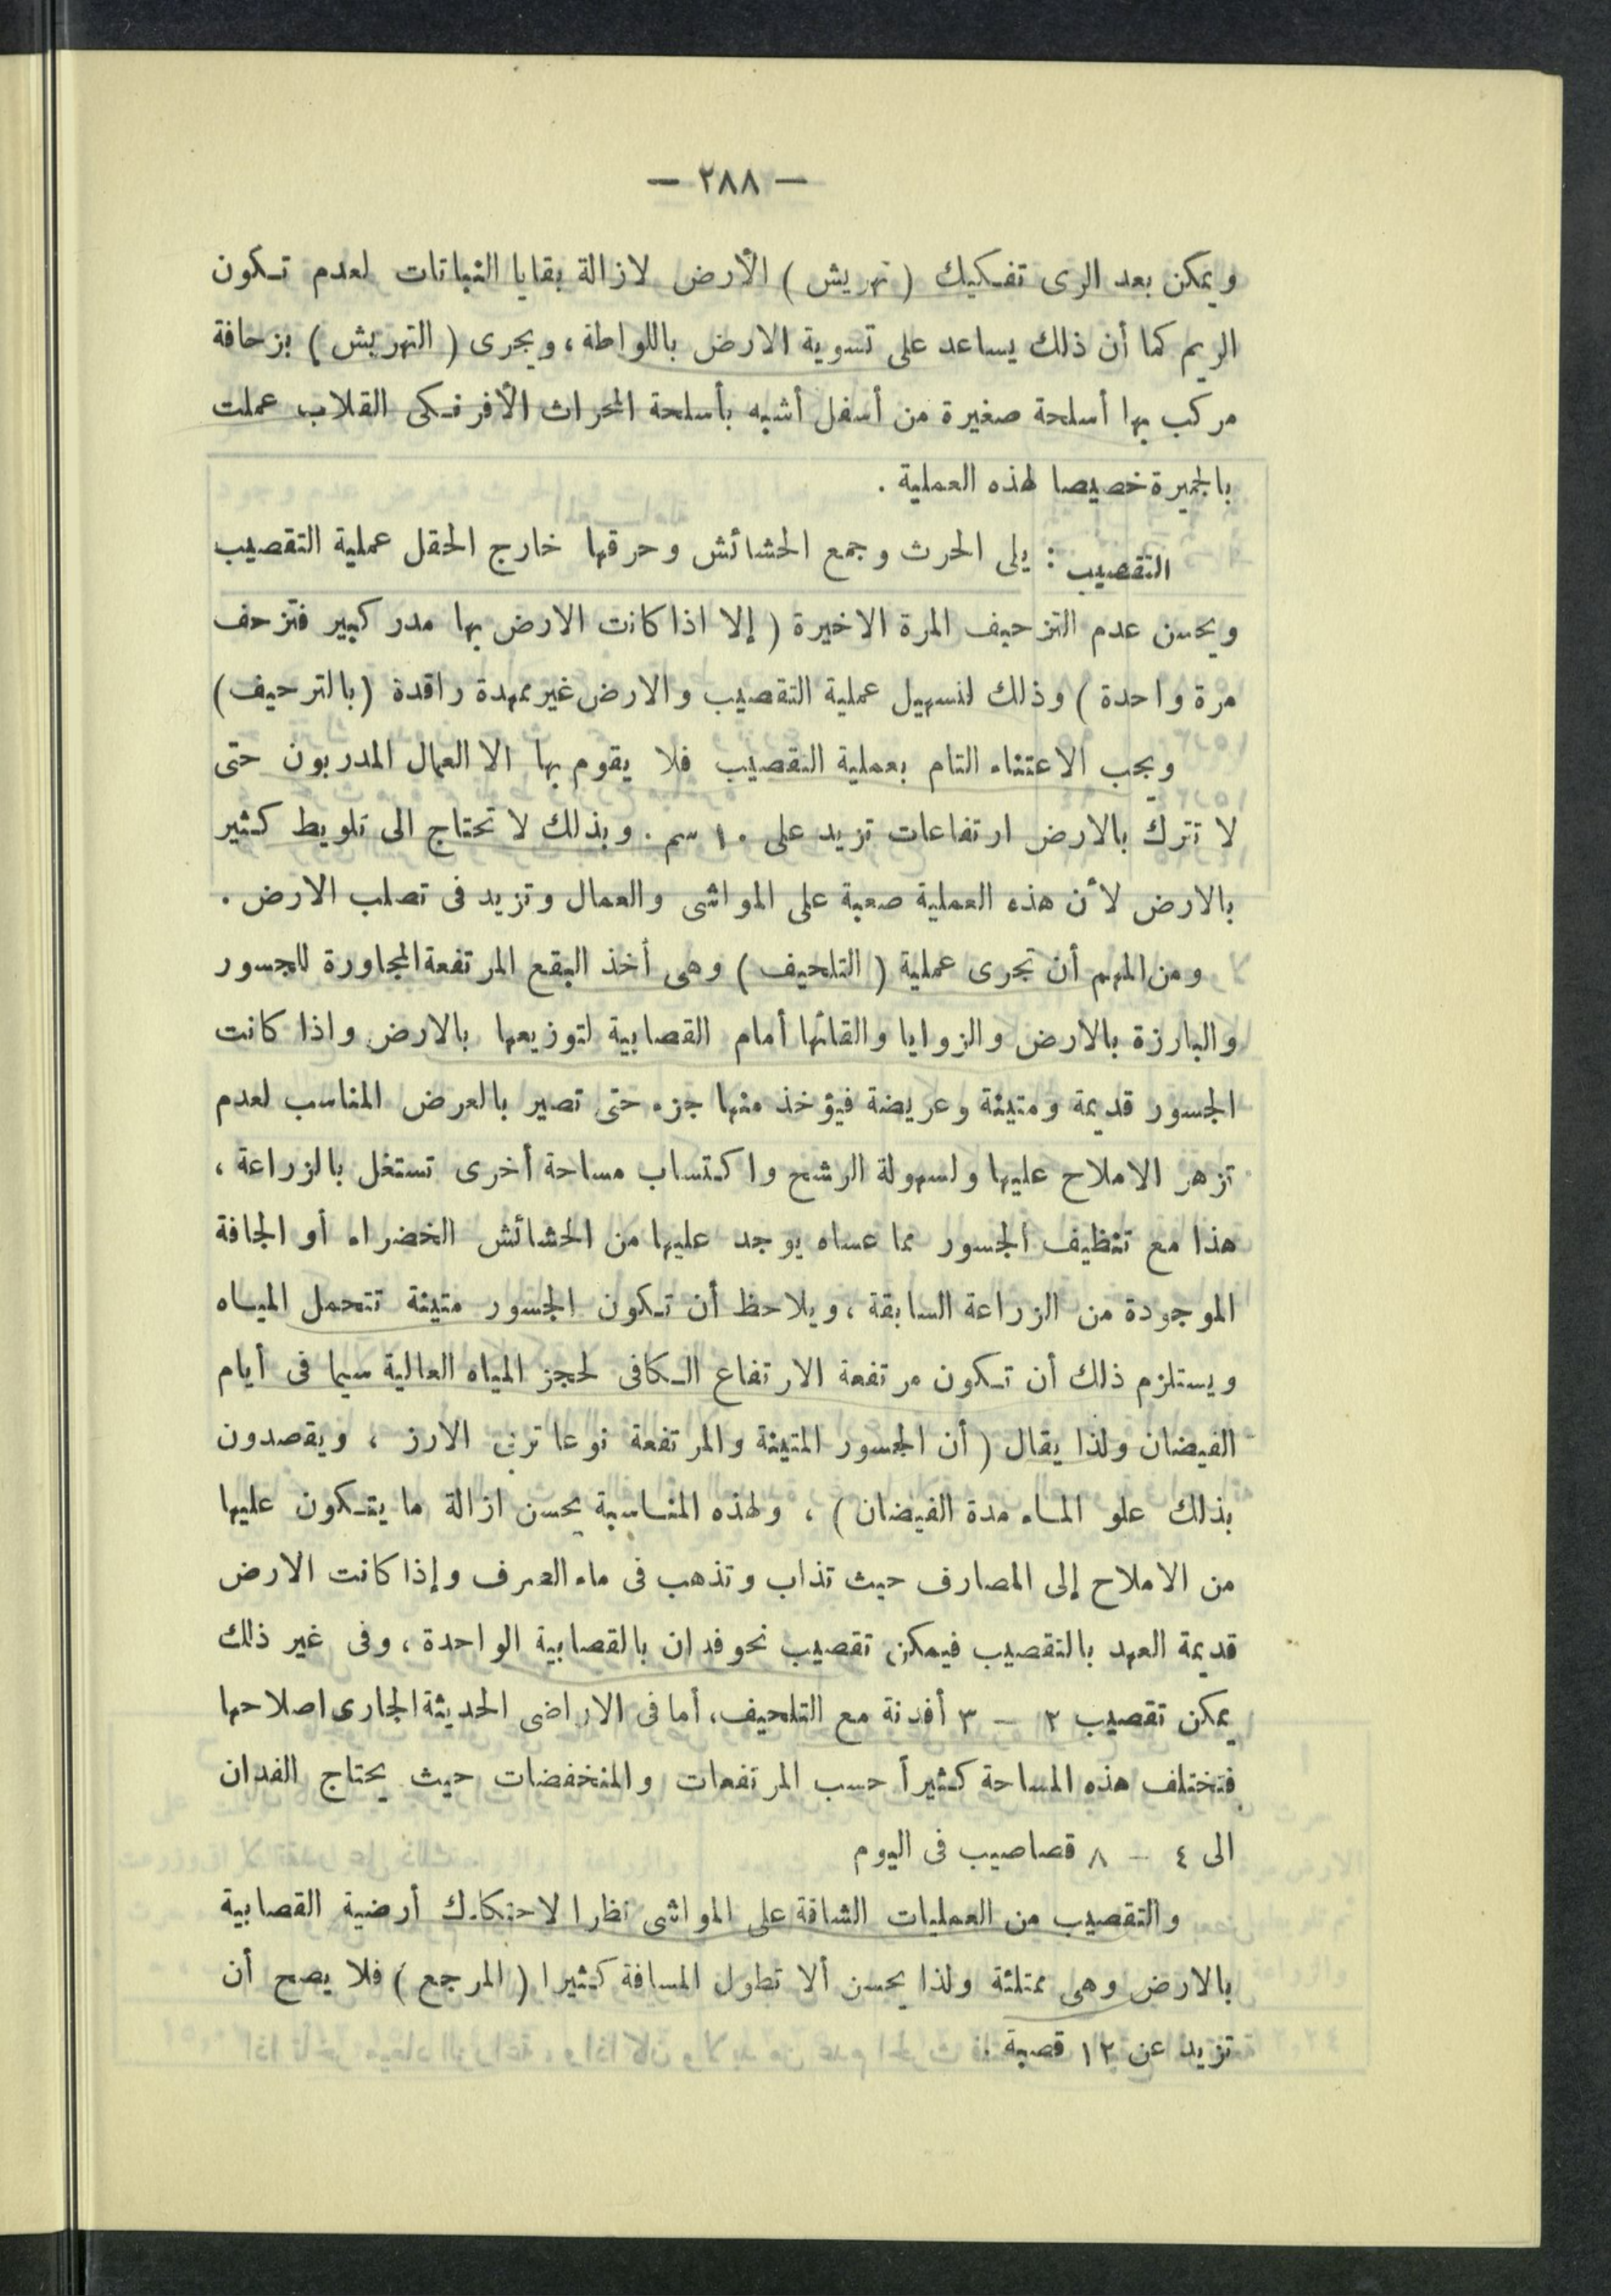 — ٢٨٨ —
ويمكن بعد الرى تفكيك ( تهريش ) الأرض لازالة بقايا النباتات لعدم تكون
الريم كما أن ذلك يساعد على تسوية الارض باللواطة ، ويجرى ( التهريش ) بزحافة
مركب بها أسلحة صغيرة من أسفل أشبه بأسلحة المحراث الأفرنكى القلاب عملت
بالجميرة خصيصا لهذه العملية .
التقصيب : يلى الحرث وجمع الحشائش وحرقها خارج الحقل عملية التقصيب
ويحسن عدم التزحيف المرة الاخيرة ( إلا اذا كانت الارض بها مدر كبير فتزحف
مرة واحدة ) وذلك لتسهيل عملية التقصيب والارض غير ممهدة راقدة ( بالترحيف )
ويجب الاعتناء التام بعملية التقصيب فلا يقوم بها الا العمال المدربون حتى
لا تترك بالارض ارتفاعات تزيد على ١٠ سم . وبذلك لا تحتاج الى تلويط كثير
بالارض لأن هذه العملية صعبة على المواشى والعمال وتزيد فى تصلب الارض .
ومن المهم أن تجرى عملية ( التلحيف ) وهى أخذ البقع المرتفعة المجاورة للجسور
والبارزة بالارض والزوايا والقائها أمام القصابية لتوزيعها بالارض واذا كانت
الجسور قديمة ومتينة وعريضة فيؤخذ منها جزء حتى تصير بالعرض المناسب لعدم
تزهر الاملاح عليها ولسهولة الرشح واكتساب مساحة أخرى تستغل بالزراعة ،
هذا مع تنظيف الجسور مما عساه يوجد عليها من الحشائش الخضراء أو الجافة
الموجودة من الزراعة السابقة ، ويلاحظ أن تكون الجسور متينة تتحمل المياه
ويستلزم ذلك أن تكون مرتفعة الارتفاع الكافى لحجز المياه العالية سيما فى أيام
الفيضان ولذا يقال ( أن الجسور المتينة والمرتفعة نوعا تربى الارز ، ويقصدون
بذلك علو الماء مدة الفيضان ) ، ولهذه المناسبة يحسن ازالة ما يتكون عليها
من الاملاح إلى المصارف حيث تذاب وتذهب فى ماء الصرف وإذا كانت الارض
قديمة العهد بالتقصيب فيمكن تقصيب نحو فدان بالقصابية الواحدة ، وفى غير ذلك
يمكن تقصيب ٢ — ٣ أفدنة مع التلحيف ، أما فى الاراضى الحديثة الجارى اصلاحها
فتختلف هذه المساحة كثيراً حسب المرتفعات والمنخفضات حيث يحتاج الفدان
الى ٤ — ٨ قصاصيب فى اليوم
والتقصيب من العمليات الشاقة على المواشى نظرا لاحتكاك أرضية القصابية
بالارض وهى ممتلئة ولذا يحسن ألا تطول المسافة كثيرا ( المرجع ) فلا يصح أن
تزيد عن ١٢ قصبة .